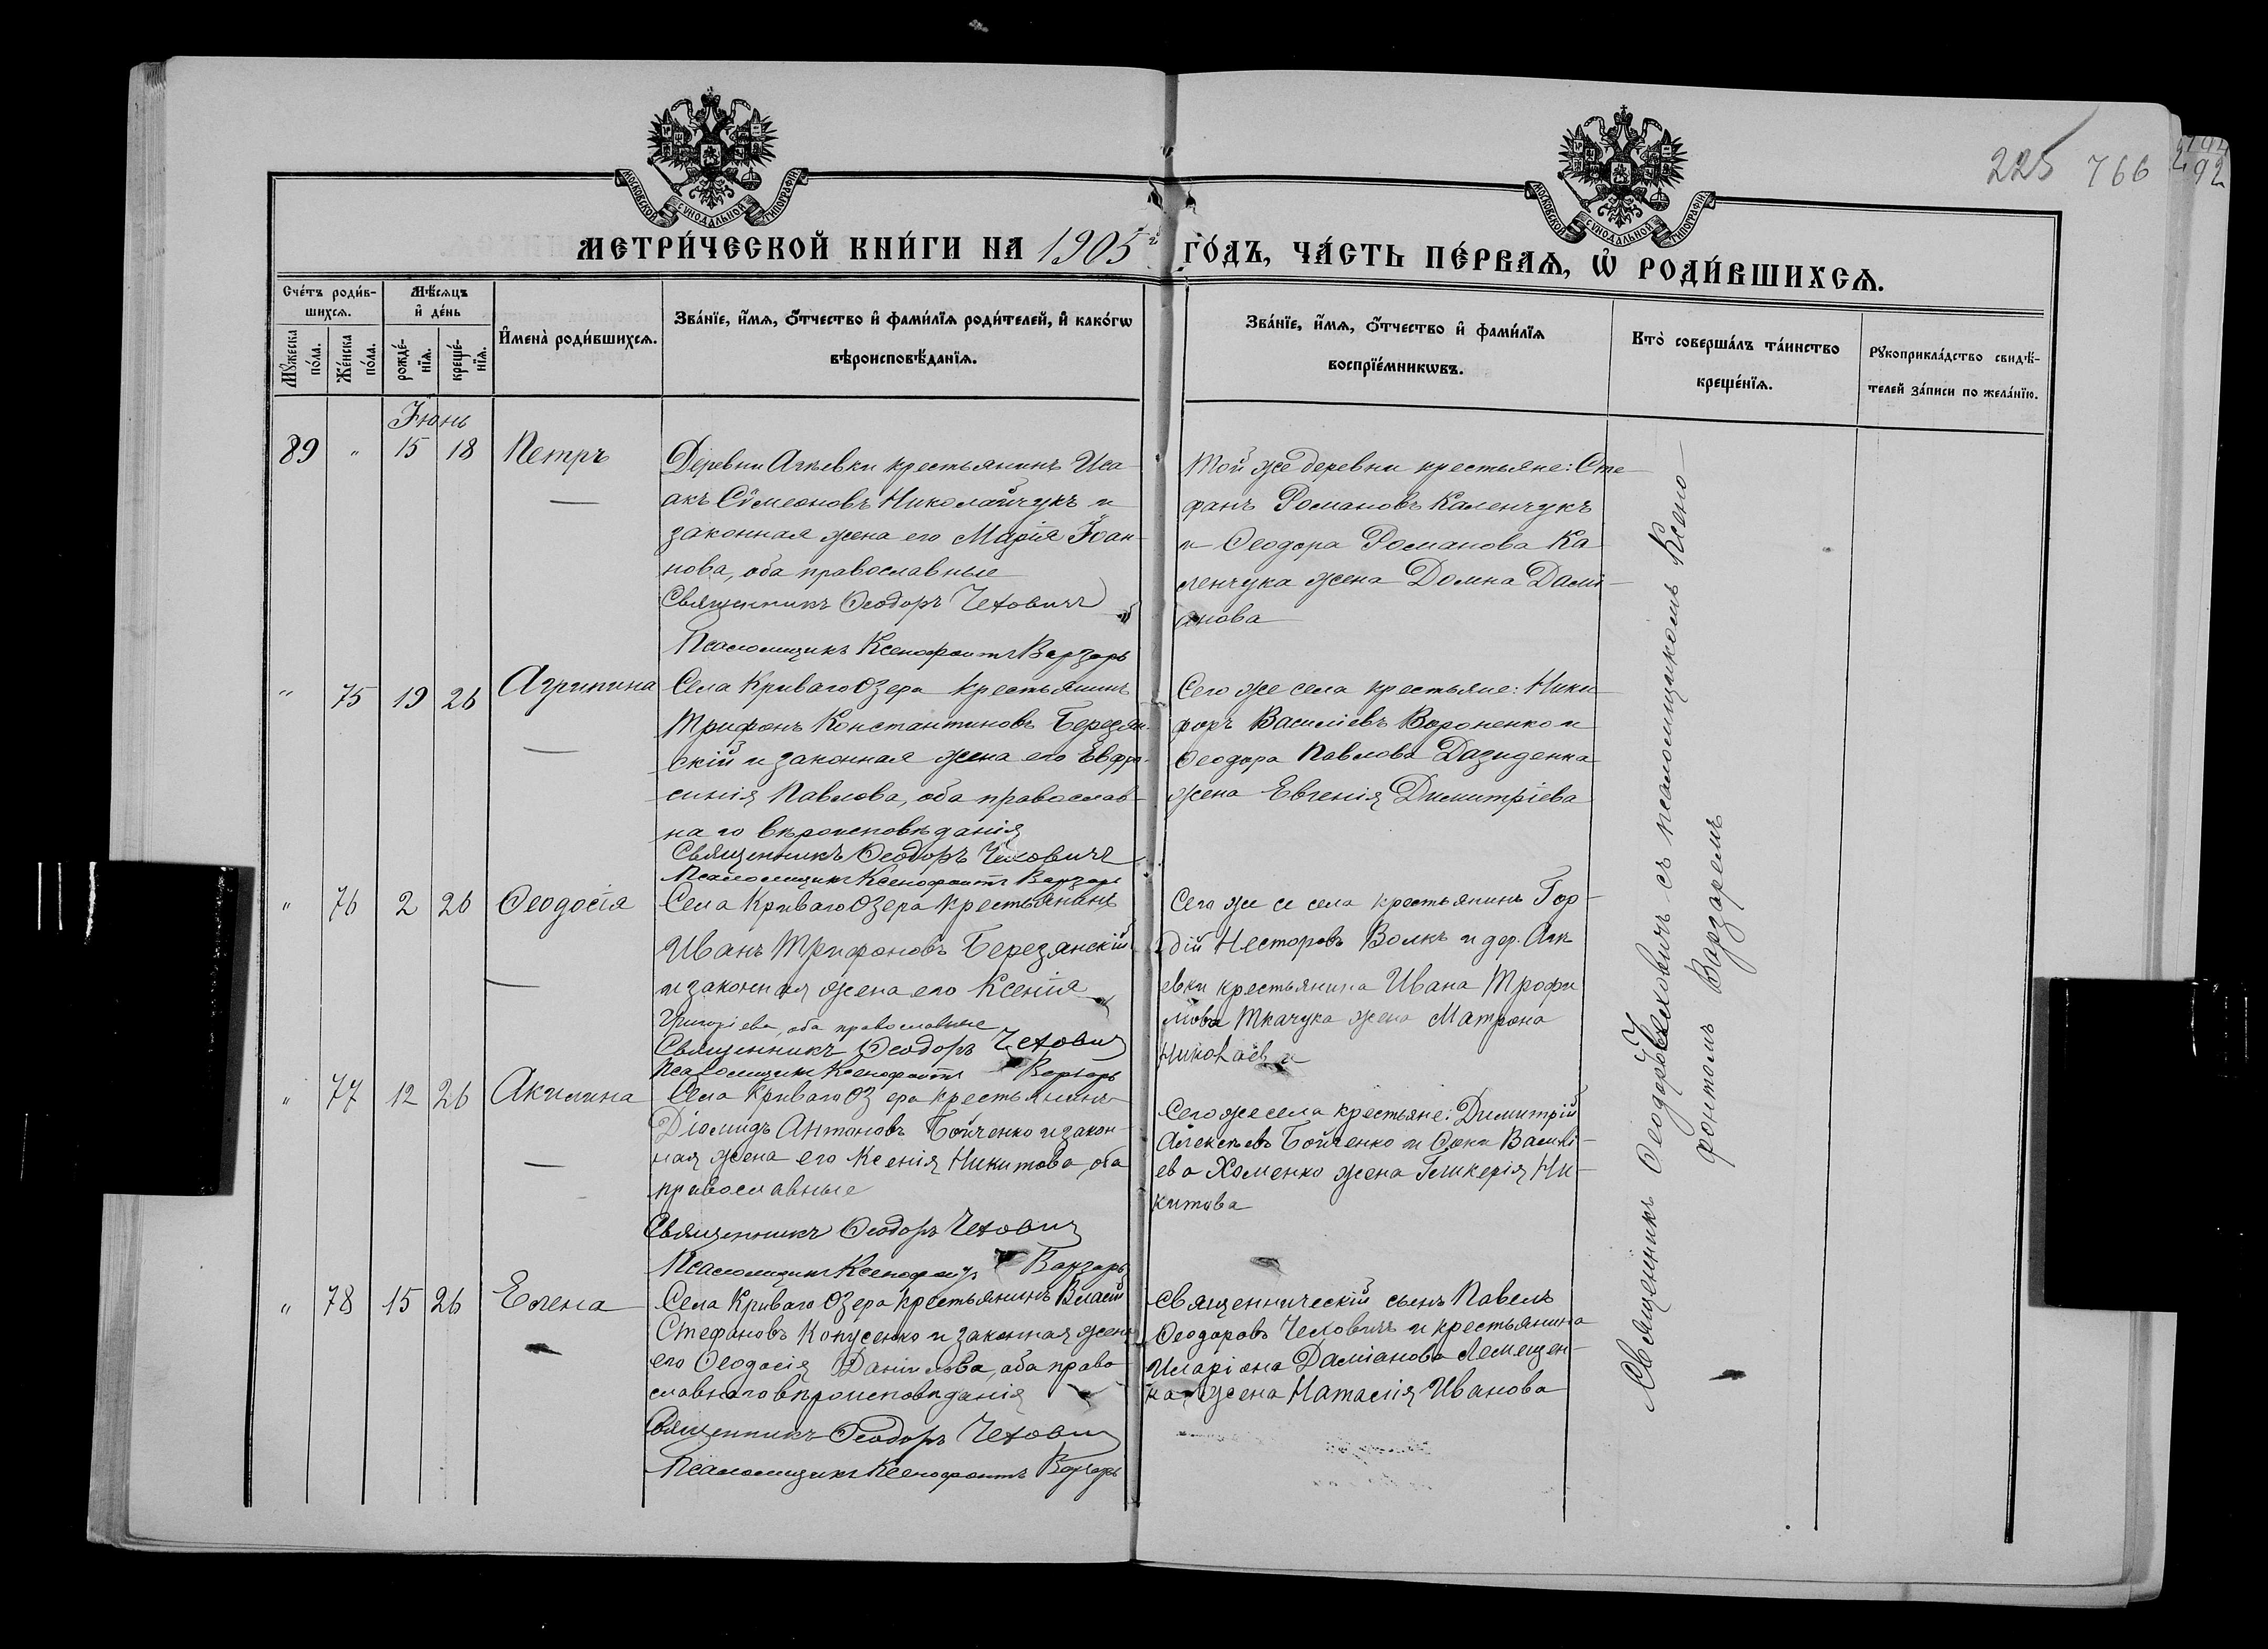 225 766
292
МОСКОВСКОЙ СѴНОДАЛЬНОЙ ТИПОГРАФІИ
МОСКОВСКОЙ СѴНОДАЛЬНОЙ ТИПОГРАФІИ
МЕТРИ́ЧЕСКОЙ КНИ́ГИ НА 1905й ГО́ДЪ, ЧА́СТЬ ПЕ́РВАѦ, Ѡ҆ РОДИ́ВШИХСѦ.
Сче́тъ роди́в-
шихсѧ.
Мꙋ́жеска по́ла.
Же́нска по́ла.
Мѣ́сѧцъ
и҆ де́нь
рожде́-
нїѧ.
креще́-
нїѧ.
И҆мена̀ роди́вшихсѧ.
Зва́нїе, и҆́мѧ, ѻ҆́тчество и҆ фами́лїѧ роди́телей, и҆ како́гѡ
вѣроисповѣ́данїѧ.
Зва́нїе, и҆́мѧ, ѻ҆́тчество и҆ фами́лїѧ
воспрїе́мникѡвъ.
Кто̀ соверша́лъ та́инство
креще́нїѧ.
Рꙋкоприкла́дство свидѣ́-
телей за́писи по жела́нїю.
Іюнь
89 " 15 18 Петръ
Деревни Агѣевки крестьянинъ Иса-
акъ Сѵмеоновъ Николайчукъ и
законная жена его Марія Іоан-
нова, оба православные
Священникъ Ѳеодоръ Чеховичъ
Псаломщикъ Ксенофонтъ Варзарь
Той же деревни крестьяне: Сте
фанъ Романовъ Каленчукъ
и Ѳеодора Романова Ка
ленчука жена Домна Дамі-
анова
" 75 19 26 Агрипина
Села Криваго Озера крестьянинъ
Трифонъ Константиновъ Березян-
скій и законная жена его Евфро-
синія Павлова, оба православ-
наго вѣроисповѣданія
Священникъ Ѳеодоръ Чеховичъ
Псаломщикъ Ксенофонтъ Варзарь
Сего же села крестьяне: Ники
форъ Василіевъ Вороненко и
Ѳеодора Павлова Дазиденка
жена Евгенія Димитріева
" 76 2 26 Ѳеодосія
Села Криваго Озера крестьянинъ
Иванъ Трифоновъ Березянскій
и законная жена его Ксенія
Григоріева, оба православные
Священникъ Ѳеодоръ Чехович
Псаломщикъ Ксенофонтъ Варзарь
Сего же се села крестьянинъ Гор-
дій Несторовъ Волкъ и дер. Агѣ
евки крестьянина Ивана Трофи
мова Ткачука жена Матрона
Николаева
" 77 12 26 Акилина
Села Криваго Озера крестьянинъ
Діомидъ Антоновъ Бойченко и закон-
ная жена его Ксенія Никитова, оба
православные
Священникъ Ѳеодоръ Чехович
Псаломщикъ Ксенофонтъ Варзарь
Сего же села крестьяне: Димитрій
Алексѣевъ Бойченко и Ѳоки Василі-
ева Хоменко жена Гликерія Ни-
китова
" 78 15 26 Елена
Села Криваго Озера крестьянинъ Власій
Стефановъ Копусенко и законная жена
его Ѳеодосія Даніилова, оба право-
славнаго вѣроисповѣданія
Священникъ Ѳеодоръ Чехович
Псаломщикъ Ксенофонтъ Варзарь
Священническій сынъ Павелъ
Ѳеодоровъ Чеховичъ и крестьянина
Иларіона Даміанова Лемещен-
ка жена Наталія Иванова
Священникъ Ѳеодоръ Чеховичъ съ псаломщикомъ Ксено-
фонтомъ Варзаремъ